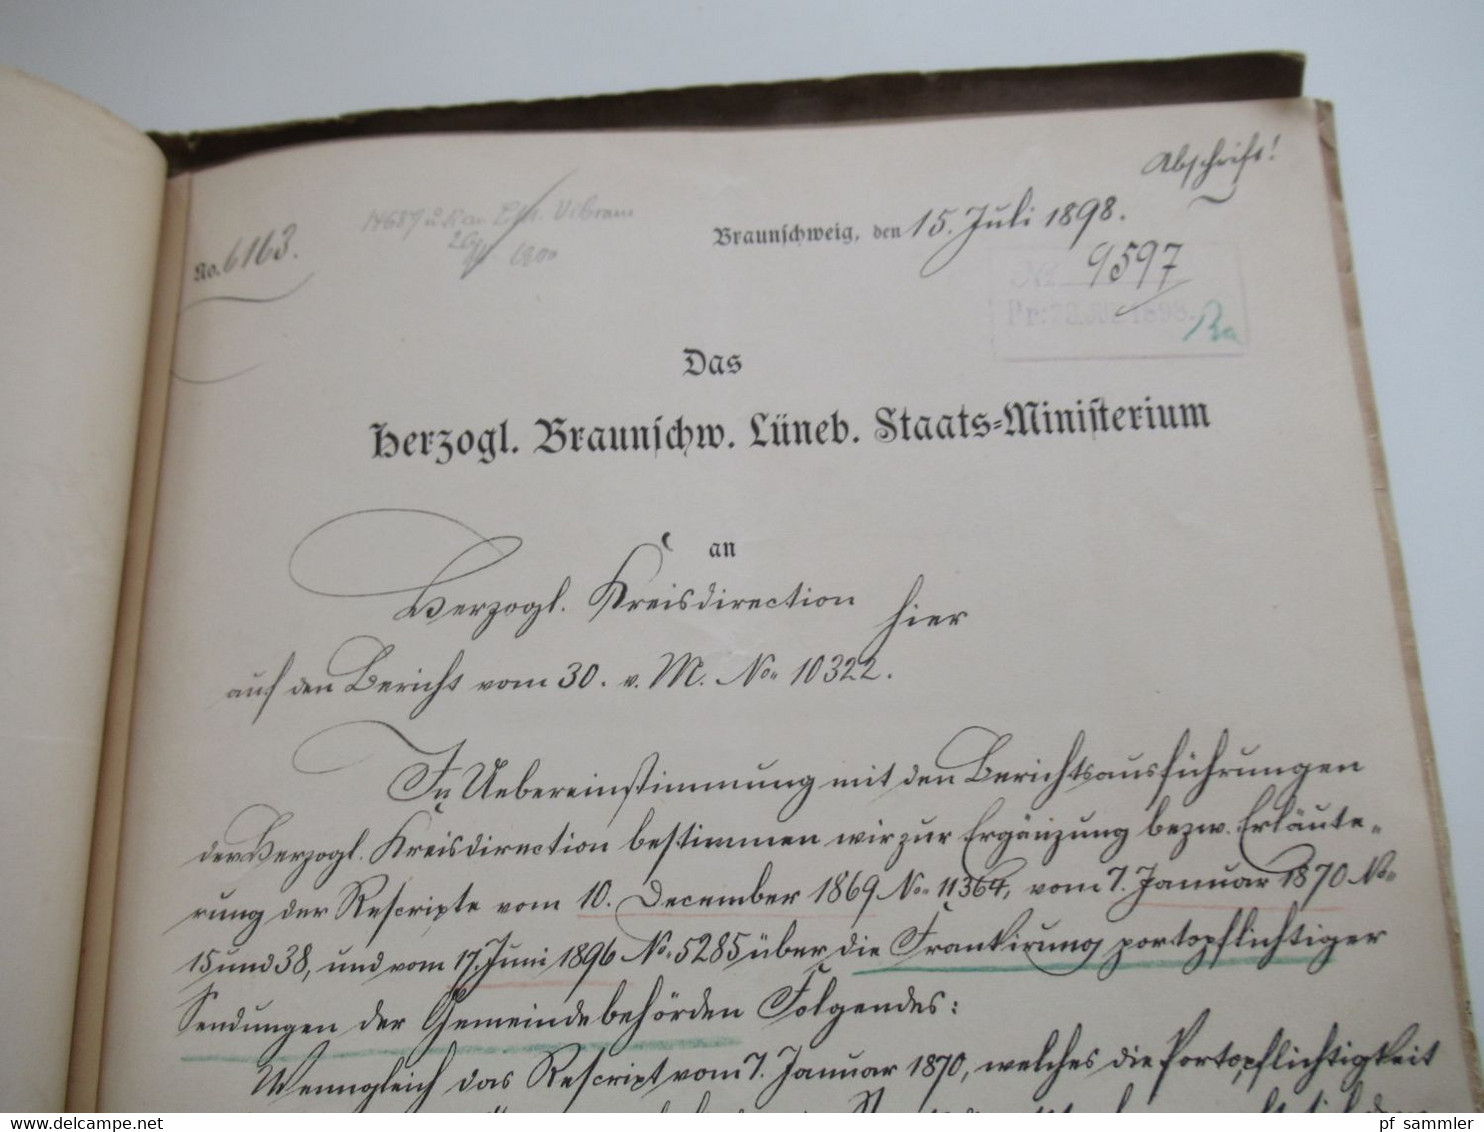 Abschrift!
No. 6163.
Braunschweig, den 15. Juli 1898.
9597
Das
Herzogl. Braunschw. Lüneb. Staats-Ministerium
an
Herzogl. Kreisdirection hier
auf den Bericht vom 30. v. M. No. 10322.
In Uebereinstimmung mit den Berichtsausführungen
der Herzogl. Kreisdirection bestimmen wir zur Ergänzung bezw. Erläute-
rung der Rescripte vom 10. December 1869 No. 11364, vom 7. Januar 1870 No.
15 und 38, und vom 17. Juni 1896 No. 5285 über die Frankirung portopflichtiger
Sendungen der Gemeindebehörden Folgendes:
Wenngleich das Rescript vom 7. Januar 1870, welches die Portopflichtigkeit
www.delcampe.net
pf_sammler